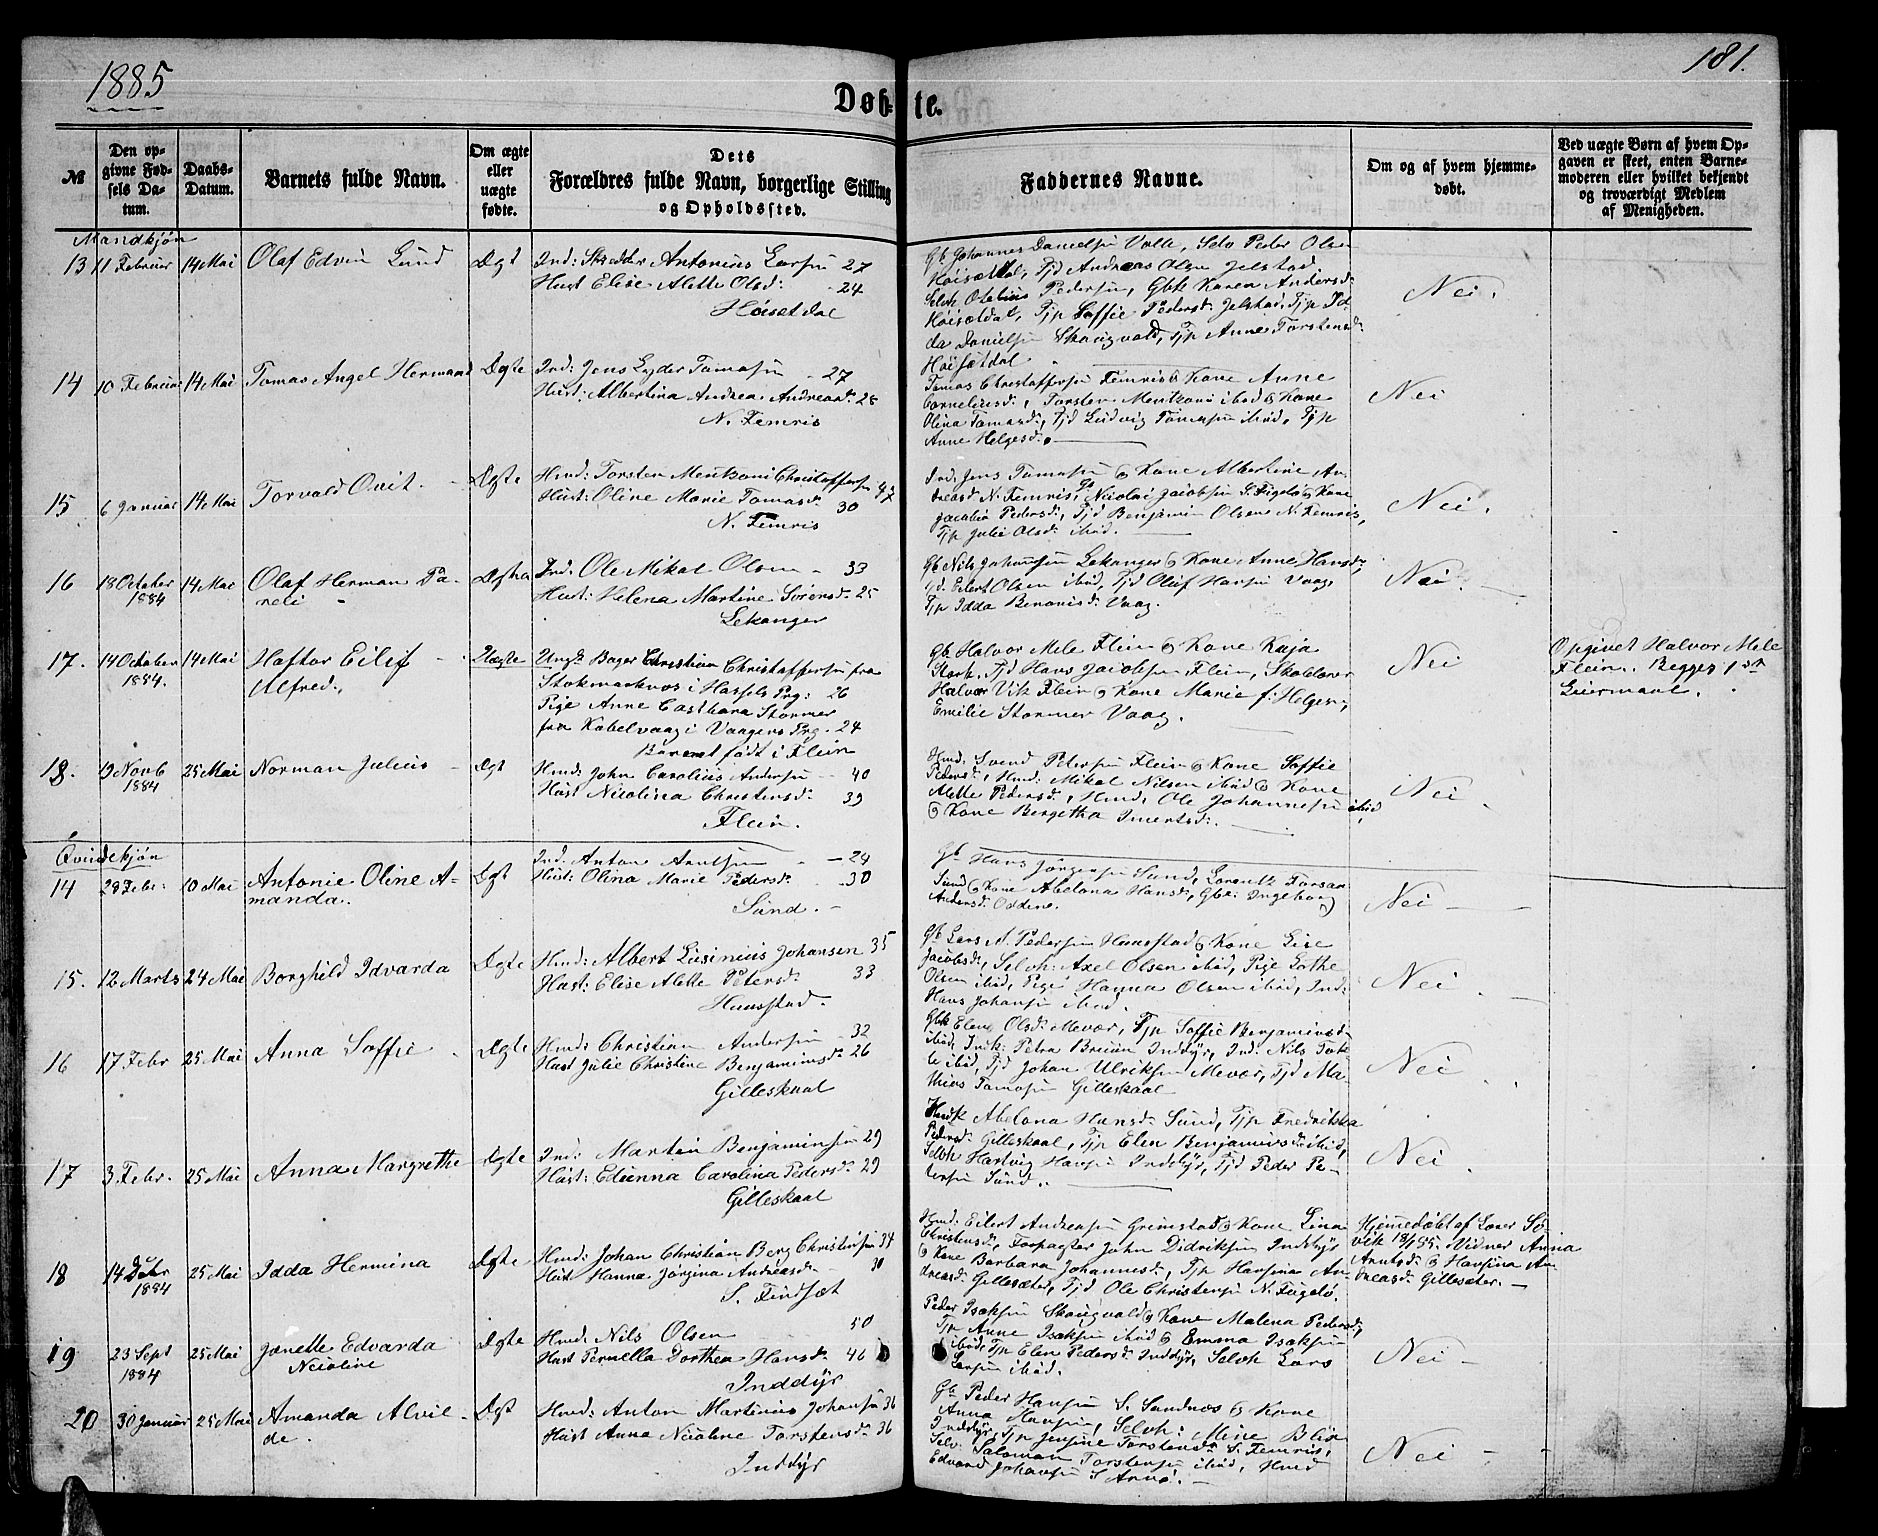 1885
181.
Døb-te.
№
Den op-
givne Fød-
sels Da-
tum.
Daabs-
Datum.
Barnets fulde Navn.
Om ægte
eller
uægte
fødte.
Dets
Forældres fulde Navn, borgerlige Stilling
og Opholdssted.
Faddernes Navne.
Om og af hvem hjemme-
døbt.
Ved uægte Børn af hvem Op-
gaven er skeet, enten Barne-
moderen eller hvilket bekjendt
og troværdigt Medlem
af Menigheden.
Mandkjøn
13 11 Februar 14 Mai Olaf Edvin Lund Ægt Ind: Skrædder Antonius Larsen 27
Hust Elise Alette Olsd: 24
Høisetdal
Gb Johannes Danielsen Valle, Selv Peder Olsen
Høisætdal, Tjd Andreas Olsen Jelstad
Selvk Otelius Pedersen, Gbk Karen Andersd:
Høisætdal, Tjp Soffie Pedersd: Jelstad, Tjp Id-
da Danielsen Skaugvold, Tjp Anne Torstensd:
Høisætdal
Nei.
14 10 Februar 14 Mai Tomas Angel Hermand Ægte Ind: Jens Lyder Tomasen 27
Hust: Albertina Andrea Andreasd: 28
N. Femris
Tomas Christoffersen Femris & Kone Anne
Corneliusd:, Torsten Mentzoni ibid & Kone
Olina Tomasd:, Tjd Ludvig Tomasen ibid, Tjp
Anne Helgesd:
Nei
15 6 Januar 14 Mai Torvald Qvit. Ægte Hmd: Torsten Mentzoni Christoffersen 47
Hust: Oline Marie Tomasd: 30
N. Femris
Ind: Jens Tomasen & Kone Albertine An-
dreasd: N. Femris, Gb Nicolai Jacobsen S. Fugelø & Kone
Jacobia Pedersd:, Tjd Benjamin Olsen N. Femris,
Tjp Julie Olsd: ibid.
Nei.
16 18 October 14 Mai Olaf Herman Pa- Ægte Ind: Ole Mikal Olsen 33
1884 reli - Hust: Helena Martine Sørensd: 25
Lekanger
Gb Nils Johansen Lekanger & Kone Anne Hansd:,
Tjd. Eilert Olsen ibid, Tjd Oluf Hansen Vaag,
Tjp Idda Benonisd: Vaag.
Nei.
17. 14 October 14 Mai Haftor Eilif Uægte Ungk: Bager Christian Christoffersen fra
1884. Alfred. Stokmarknes i Hassels Prg: 26
Pige Anne Castbara Stormer
fra Kabelvaag i Vaagens Prg. 24
Barnet født i Flein
Gb Halvor Mele Flein & Kone Kaja
Stork, Tjd Hans Jacobsen Flein, Skolelærer
Halvor Vik Flein & Kone Marie f: Helgesen,
Emilie Stormer Vaag.
Nei
Opgivet Halvor Mele
Flein. Begges 1ste
Leiermaal.
18. 19 Novb 25 Mai Norman Julius Ægt Hmd: John Carolius Andersen 40
1884 Hust Nicolina Christensd: 39
Flein.
Hmd: Svend Petersen Flein & Kone Soffie
Pedersd:, Hmd: Mikal Nilsen ibid & Kone
Alette Pedersd:, Hmd: Ole Johannesen ibid
& Kone Bergetha Imertsd:.
Nei.
Qvindekjøn
14 28 Febr: 10 Mai Antonie Oline A- Ægt Ind: Anton Arntsen 24
manda. Hust: Olina Marie Pedersd: 30
Sund.
Gb Hans Jørgensen Sund, Lorentz Torsen
Sund & Kone Abelona Hansd:, Gbk: Ingeborg
Andersd: Oddene.
Nei
15. 12 Marts 24 Mai Borghild Idvarda Ægte Hmd: Albert Lusinius Johansen 35
Hust: Elise Alette Petersd: 33
Haugstad.
Gb Lars A. Pedersen Haugstad & Kone Lise
Jacobsd:, Selvk: Axel Olsen ibid, Pige Lothe
Olsen ibid, Pige Hanna Olsen ibid, Ind:
Hans Johansen ibid.
Nei.
16 17 Febr 25 Mai Anna Soffie Ægte Hmd: Christian Andersen 32
Hust Julie Christine Benjaminsd: 26
Gilleskaal
Gbk Elen Olsd: Mevær, Tjp Soffie Benjaminsd:
ibid, Indk: Petra Bruun Inddyr, Ind: Nils Tok-
le ibid, Tjd Johan Ulriksen Mevær, Tjd Ma-
thias Tomasen Gilleskaal
Nei
17 3. Febr. 25 Mai Anna Margrethe Ægte Ind: Martin Benjaminsen 29
Hust: Edianna Carolina Pedersd: 29
Gilleskaal
Hmdk Abelona Hansd: Sund, Tjp Fredrikka
Pedersd: Gilleskaal, Tjp Elen Benjaminsd: ibid,
Selvk Hartvig Hansen Inddyr, Tjd Peder Pe-
dersen Sund.
Nei.
18 14 Debr 25 Mai Idda Hermina Ægte Hmd: Johan Christian Berg Christensen 34
1884 Hust Hanna Jørgina Andreasd: 30
S. Findset
Hmd: Eilert Andreasen Grimstad & Kone Lina
Christensd:, Forpagter John Didriksen Inddyr
& Kone Barbara Johannesd:, Tjp Hansina An-
dreasd: Gillesæter, Tjd Ole Christensen N. Fugelø.
Hjemmedøbt af Lærer Sø-
vik 18/1 85. Vidner Anna
Arntsd: & Hansina An-
dreasd: Gillesæter.
19 23 Sept 25 Mai Janette Edvarda Ægte Hmd: Nils Olsen 50
1884 Nicoline Hust Pernella Dorthea Hansd: 46
Inddyr
Peder Isaksen Skaugvold & Kone Malena Pedersd:,
Tjp Anne Isaksen ibid & Emma Isaksen
ibid, Tjp Elen Pedersd: Inddyr, Selvk Lars
Larsen ibid.
Nei
20 30 Januar 25 Mai Amanda Alvil- Ægt Hmd: Anton Martinus Johansen 36
de. Hust Anna Nicoline Torstensd: 36
Inddyr
Gb Peder Hansen S. Sandnes & Kone
Anna Hansen, Selvk: Mine Blix
Inddyr, Tjp Jensine Torstensd: S. Femris,
Selv. Salomon Torstensen ibid, Hmd
Edvard Johansen S. Arnø.
Nei